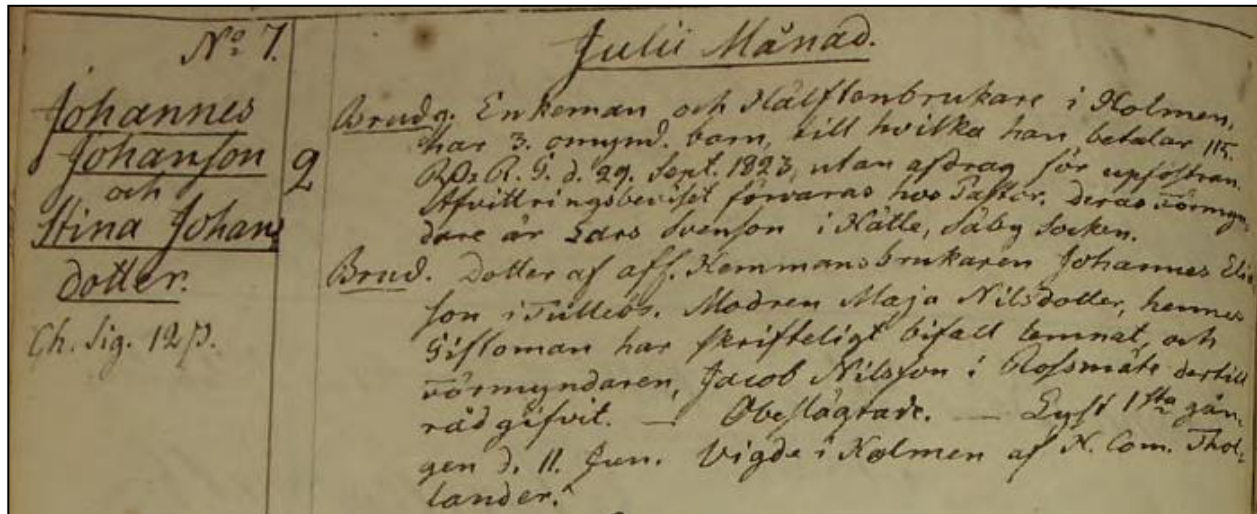 No 7.
Julii Månad.
Johannes
Johanson
och
Stina Johans
dotter.
Ch. Sig. 12 β.
2
Brudg. Enkeman och Hälftenbrukare i Holmen,
har 3. omynd. barn, till hvilka han betalar 115.
Rdr R. G. d. 29. Sept. 1823, utan afdrag för upfostran.
Afvittringsbeviset förvaras hos Pastor. deras förmyn-
dare är Lars Svenson i Hätle, Säby Socken.
Brud. Dotter af afl. Hemmansbrukaren Johannes Elia
son i Tullebo. Modren Maja Nilsdotter, hennes
Giftoman har skrifteligt bifall lemnat, och
förmyndaren, Jacob Nilsson i Rossmåla dertill
råd gifvit. — Obeslägtade. — Lyst 1sta gån-
gen d. 11. Jun. Vigde i Holmen af N. Com. Thol-
lander.